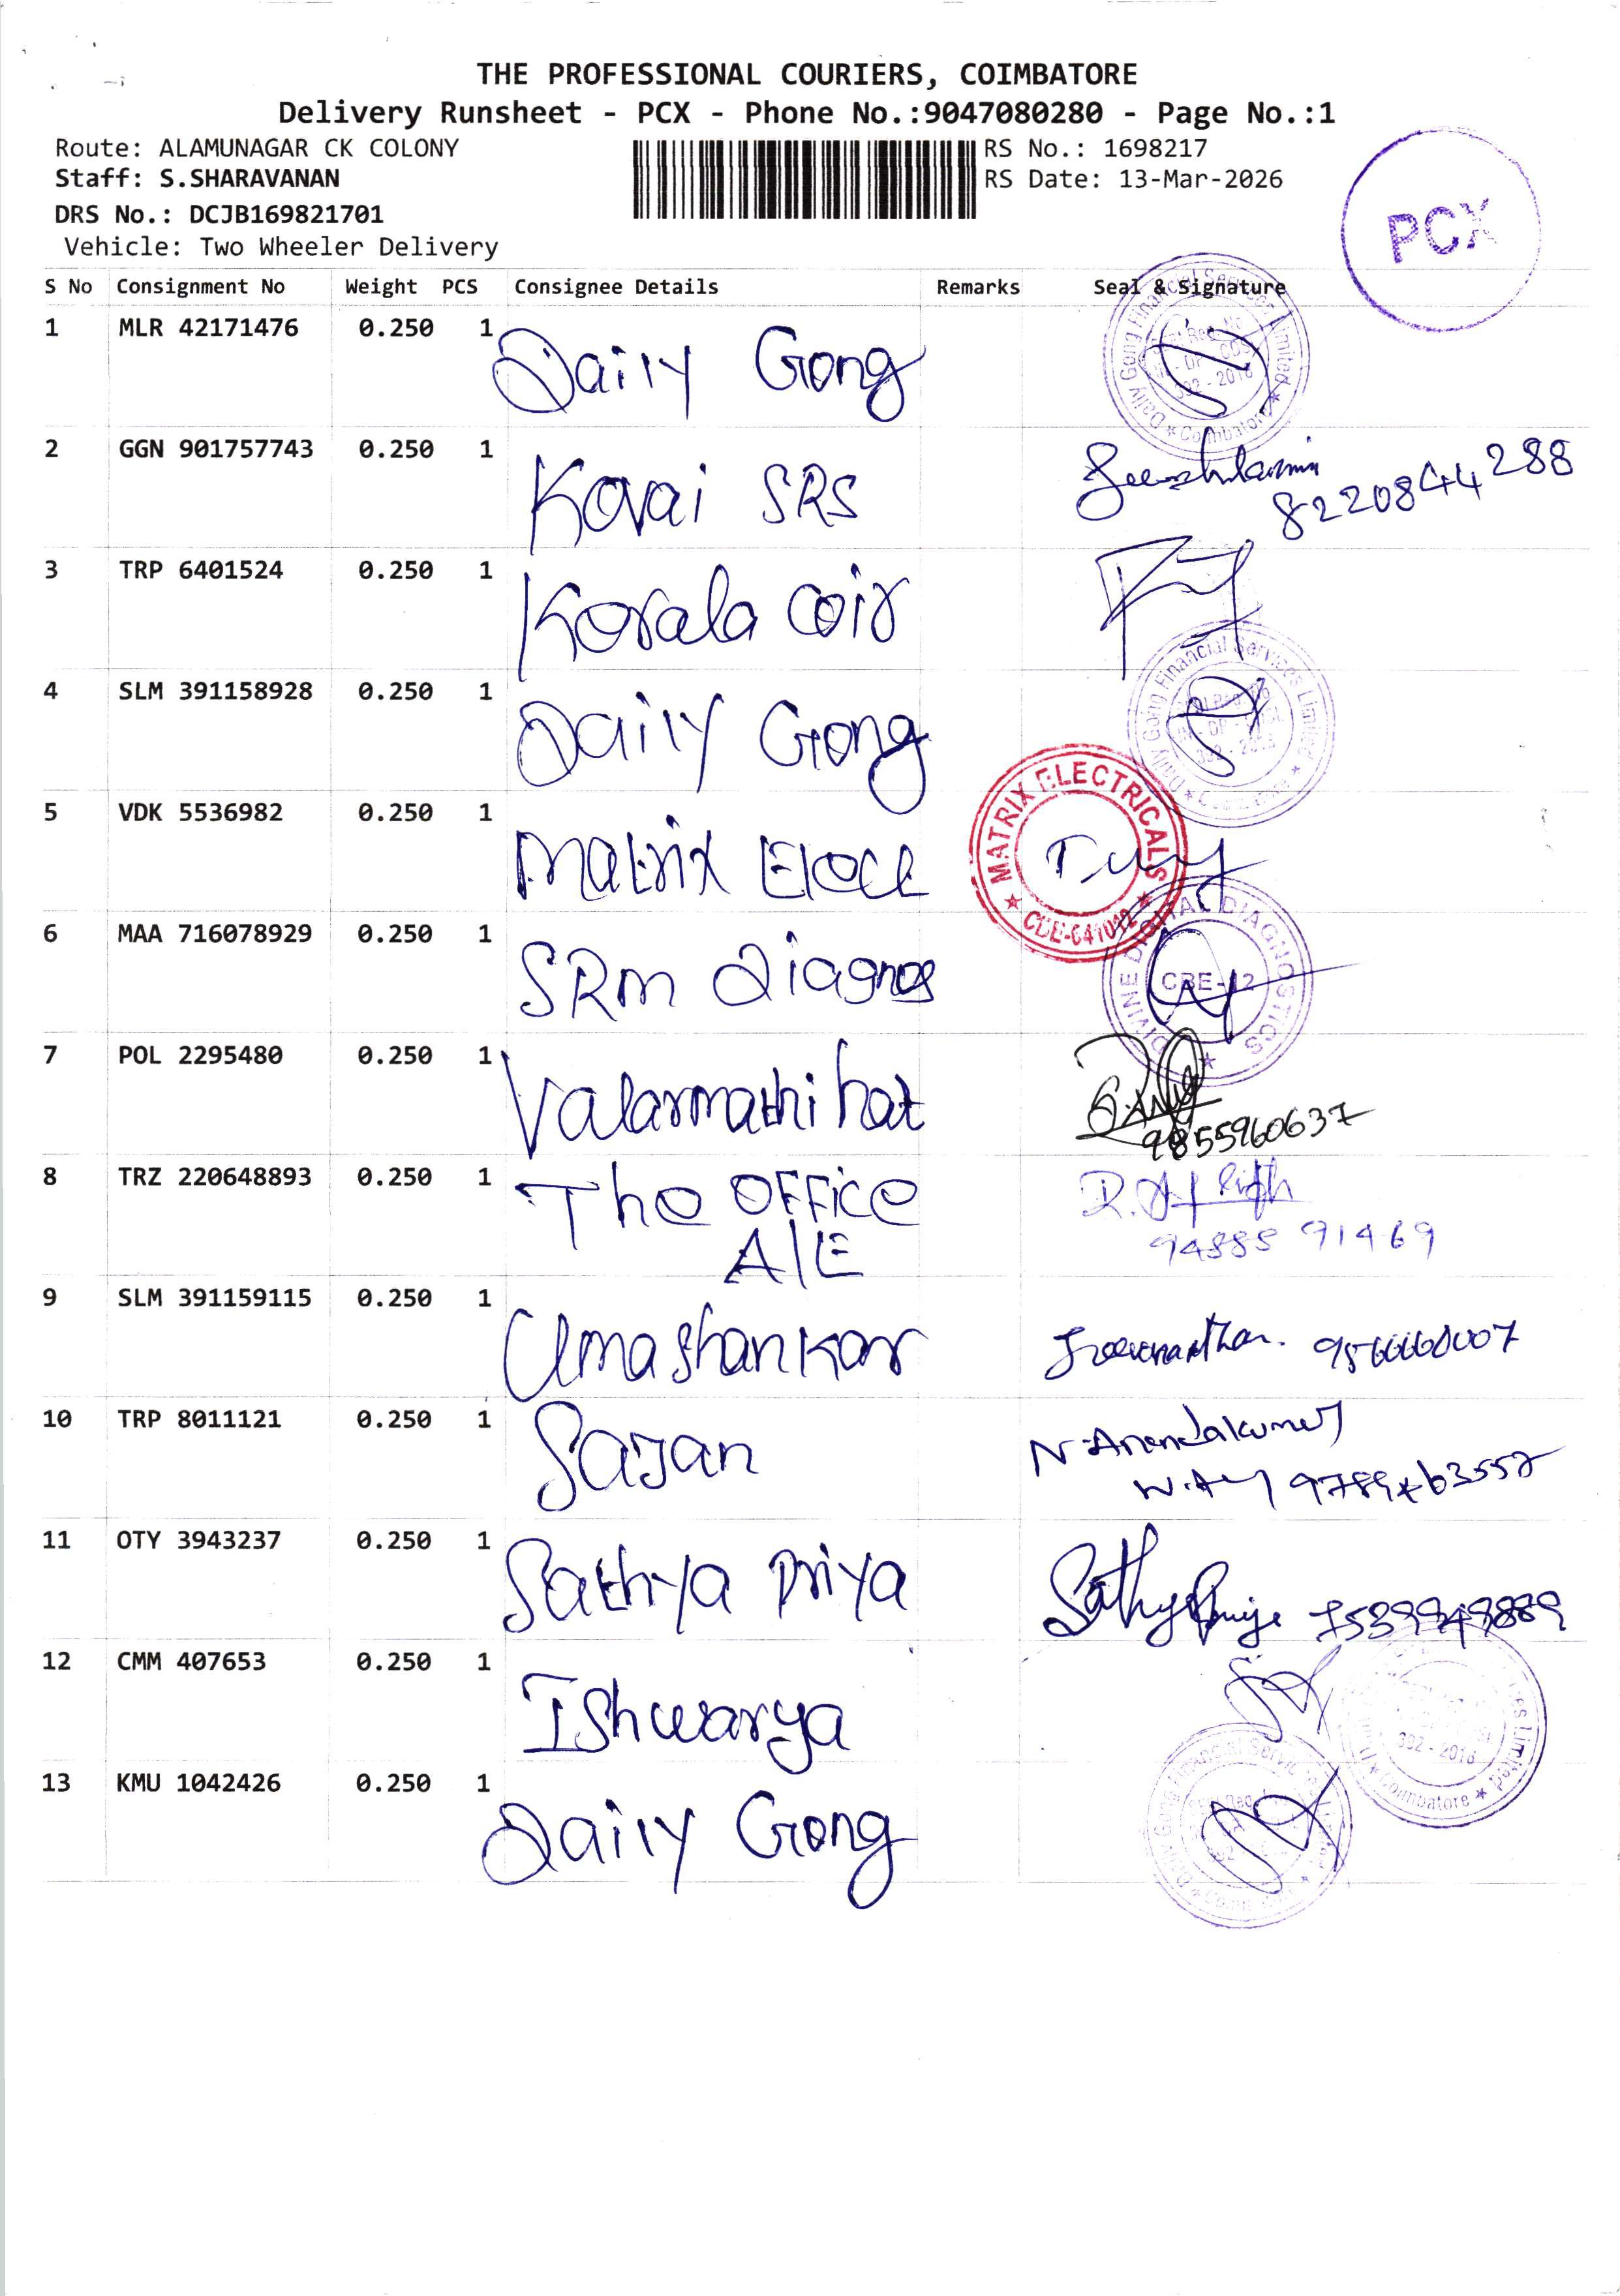 THE PROFESSIONAL COURIERS, COIMBATORE
Delivery Runsheet - PCX - Phone No.:9047080280 - Page No.:1
Route: ALAMUNAGAR CK COLONY
RS No.: 1698217
Staff: S.SHARAVANAN
RS Date: 13-Mar-2026
DRS No.: DCJB169821701
PCX
Vehicle: Two Wheeler Delivery
S No Consignment No Weight PCS Consignee Details Remarks Seal & Signature
1 MLR 42171476 0.250 1 Daily Gong
Daily Gong Financial Services Limited Coimbatore
2 GGN 901757743 0.250 1 Kovai SRS
8220844288
3 TRP 6401524 0.250 1 Korala Coir
4 SLM 391158928 0.250 1 Daily Gong
Daily Gong Financial Services Limited
5 VDK 5536982 0.250 1 Matrix Elocl
MATRIX ELECTRICALS CBE-641012
6 MAA 716078929 0.250 1 SRm diagnos
DIVINE DIGITAL DIAGNOSTICS CBE-12
7 POL 2295480 0.250 1 Valarmathi hat
9855960637
8 TRZ 220648893 0.250 1 The OFFice
A/E
94885 91469
9 SLM 391159115 0.250 1 Umashankar
10 TRP 8011121 0.250 1 Sajan
N. Anandakumar
11 OTY 3943237 0.250 1 Sathya Priya
Sathyapriya
12 CMM 407653 0.250 1 Ishwarya
302 - 2016
Coimbatore
13 KMU 1042426 0.250 1 Daily Gong